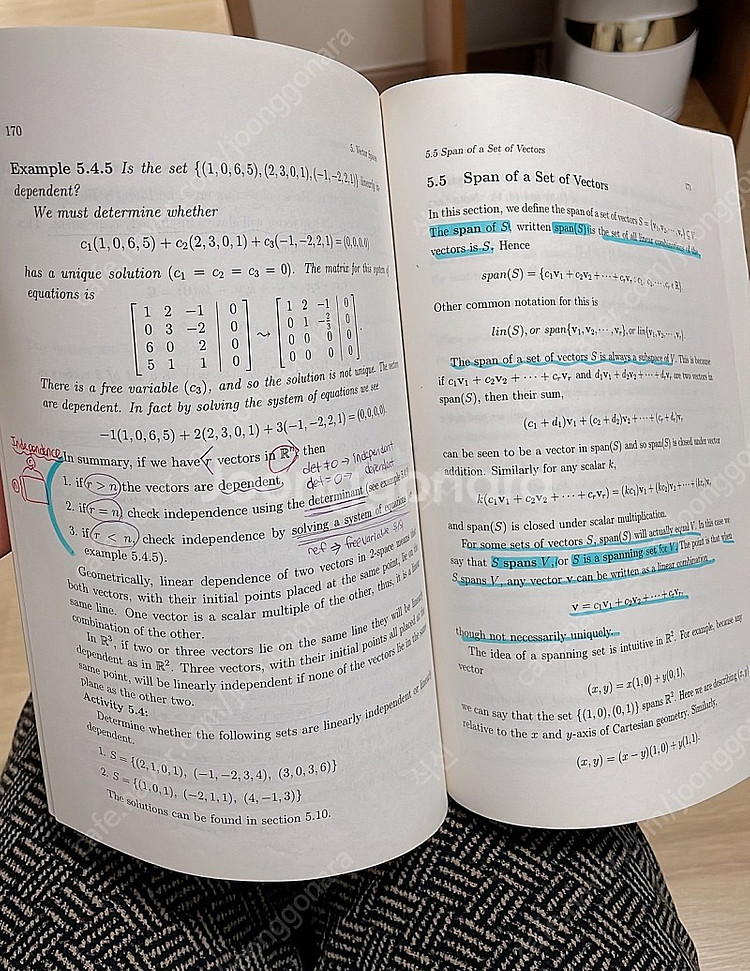 170
5. Vector Spaces
Example 5.4.5 Is the set {(1,0,6,5),(2,3,0,1),(−1,−2,2,1)} linearly
dependent?
We must determine whether
c₁(1,0,6,5) + c₂(2,3,0,1) + c₃(−1,−2,2,1) = (0,0,0,0)
has a unique solution (c₁ = c₂ = c₃ = 0). The matrix for this system of
equations is
[ 1 2 −1 | 0 ] [ 1 2 −1 | 0 ]
[ 0 3 −2 | 0 ] ⇝ [ 0 1 −2/3 | 0 ]
[ 6 0 2 | 0 ] [ 0 0 0 | 0 ]
[ 5 1 1 | 0 ] [ 0 0 0 | 0 ]
There is a free variable (c₃), and so the solution is not unique. The vectors
are dependent. In fact by solving the system of equations we see
−1(1,0,6,5) + 2(2,3,0,1) + 3(−1,−2,2,1) = (0,0,0,0).
Independence
In summary, if we have r vectors in ℝⁿ, then
det≠0 → independent
det=0 → dependent
1. if r > n, the vectors are dependent,
2. if r = n, check independence using the determinant (see example
3. if r < n, check independence by solving a system of equations
ref ⇒ free variable
example 5.4.5).
Geometrically, linear dependence of two vectors in 2-space means that
both vectors, with their initial points placed at the same point, lie on the
same line. One vector is a scalar multiple of the other, thus, it is a linear
combination of the other.
In ℝ³, if two or three vectors lie on the same line they will be linearly
dependent as in ℝ². Three vectors, with their initial points all placed at the
same point, will be linearly independent if none of the vectors lie in the same
plane as the other two.
Activity 5.4:
Determine whether the following sets are linearly independent or linearly
dependent.
1. S = {(2,1,0,1), (−1,−2,3,4), (3,0,3,6)}
2. S = {(1,0,1), (−2,1,1), (4,−1,3)}
The solutions can be found in section 5.10.
5.5 Span of a Set of Vectors
171
5.5 Span of a Set of Vectors
In this section, we define the span of a set of vectors S = {v₁,v₂,⋯,vᵣ} ⊆ V.
The span of S, written span(S) is the set of all linear combinations of the
vectors is S. Hence
span(S) = {c₁v₁ + c₂v₂ + ⋯ + cᵣvᵣ : c₁, c₂, ⋯, cᵣ ∈ ℝ}
Other common notation for this is
lin(S), or span{v₁,v₂,⋯,vᵣ}, or lin{v₁,v₂,⋯,vᵣ}.
The span of a set of vectors S is always a subspace of V. This is because
if c₁v₁ + c₂v₂ + ⋯ + cᵣvᵣ and d₁v₁ + d₂v₂ + ⋯ + dᵣvᵣ are two vectors in
span(S), then their sum,
(c₁ + d₁)v₁ + (c₂ + d₂)v₂ + ⋯ + (cᵣ + dᵣ)vᵣ
can be seen to be a vector in span(S) and so span(S) is closed under vector
addition. Similarly for any scalar k,
k(c₁v₁ + c₂v₂ + ⋯ + cᵣvᵣ) = (kc₁)v₁ + (kc₂)v₂ + ⋯ + (kcᵣ)vᵣ
and span(S) is closed under scalar multiplication.
For some sets of vectors S, span(S) will actually equal V. In this case we
say that S spans V, or S is a spanning set for V. The point is that when
S spans V, any vector v can be written as a linear combination
v = c₁v₁ + c₂v₂ + ⋯ + cᵣvᵣ,
though not necessarily uniquely.
The idea of a spanning set is intuitive in ℝ². For example, because any
vector
(x, y) = x(1,0) + y(0,1),
we can say that the set {(1,0),(0,1)} spans ℝ². Here we are describing (x,y)
relative to the x and y-axis of Cartesian geometry. Similarly,
(x, y) = (x − y)(1,0) + y(1,1).
joonggonara
cafe.naver.com/joonggonara